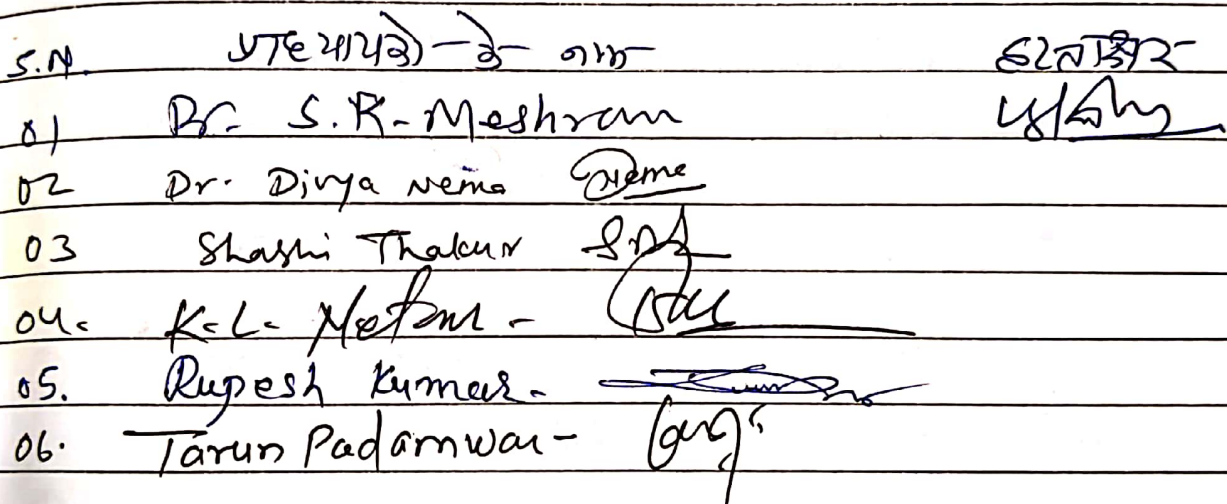 S.N. प्राध्यापकों के नाम हस्ताक्षर
01 Dr. S.R. Meshram
02 Dr. Divya Nema Neme
03 Shashi Thakur
04. K.L. Metam -
05. Rupesh Kumar -
06. Tarun Padamwar -